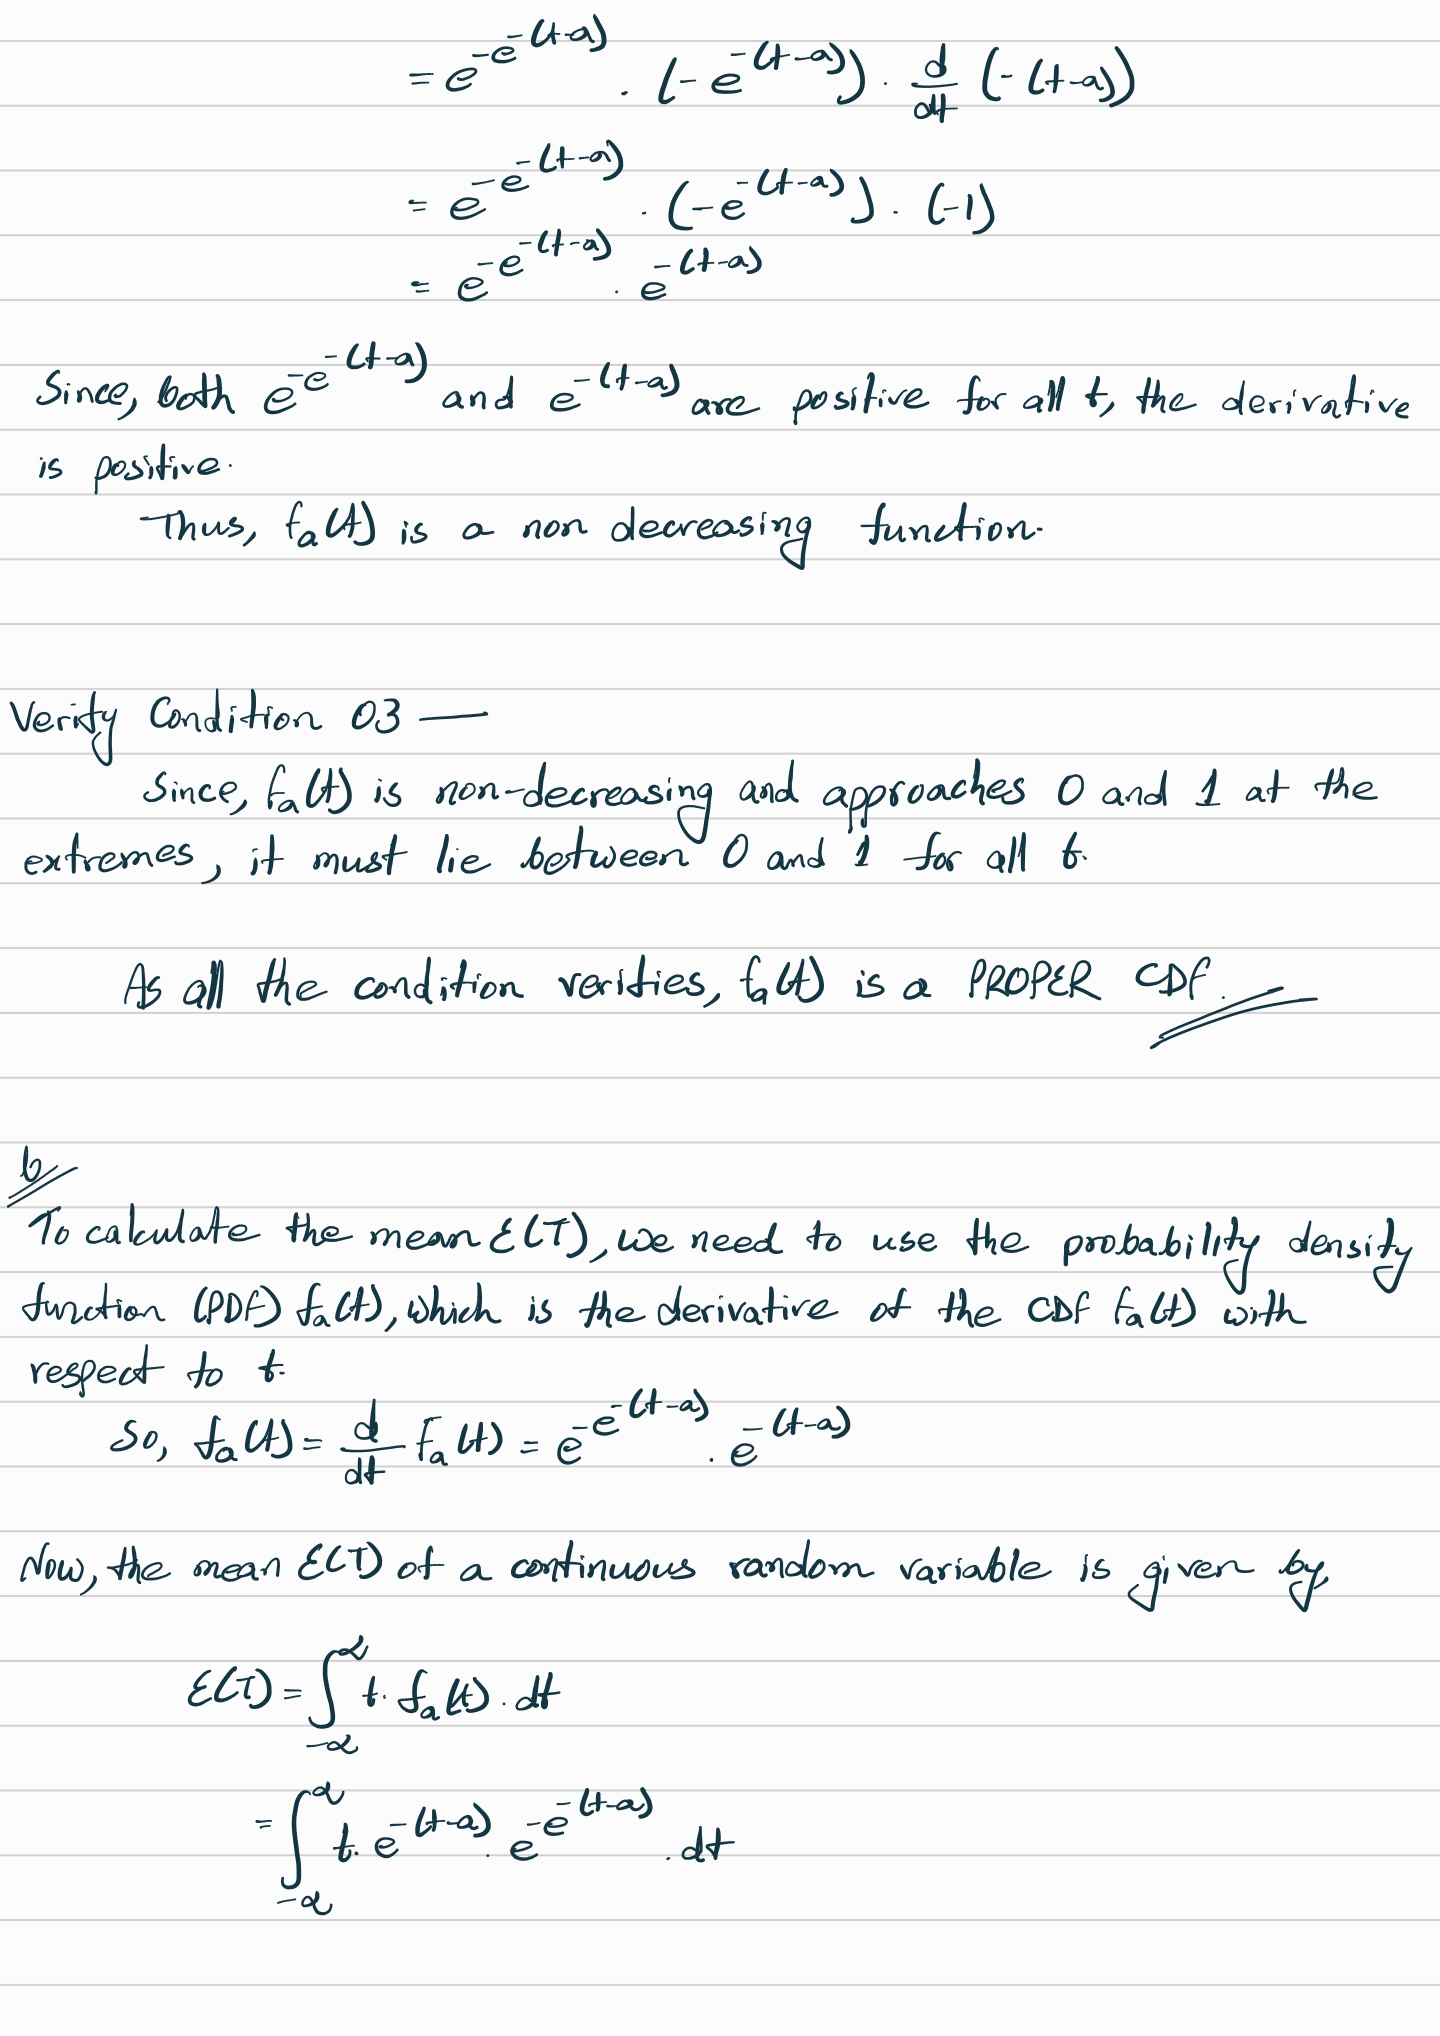 = e^{-e^{-(t-a)}} . (-e^{-(t-a)}) . d/dt (-(t-a))
= e^{-e^{-(t-a)}} . (-e^{-(t-a)}) . (-1)
= e^{-e^{-(t-a)}} . e^{-(t-a)}
Since, both e^{-e^{-(t-a)}} and e^{-(t-a)} are positive for all t, the derivative
is positive.
Thus, F_a(t) is a non decreasing function.
Verify Condition 03 —
Since, F_a(t) is non-decreasing and approaches 0 and 1 at the
extremes, it must lie between 0 and 1 for all t.
As all the condition verifies, F_a(t) is a PROPER CDF.
b
To calculate the mean E(T), we need to use the probability density
function (PDF) f_a(t), which is the derivative of the CDF F_a(t) with
respect to t.
So, f_a(t) = d/dt F_a(t) = e^{-e^{-(t-a)}} . e^{-(t-a)}
Now, the mean E(T) of a continuous random variable is given by,
E(T) = ∫_{-∝}^{∝} t. f_a(t) . dt
= ∫_{-∝}^{∝} t. e^{-(t-a)} . e^{-e^{-(t-a)}} . dt